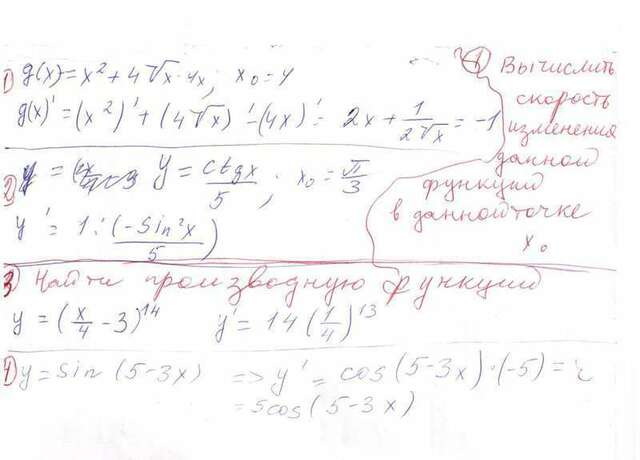 1) g(x) = x² + 4√x · 4x; x₀ = 4
g(x)' = (x²)' + (4√x)' - (4x)' = 2x + 1/(2√x) = -1
① Вычислить
скорость
изменения
данной
функции
в данной точке
x₀
2) y = ctgx/5; x₀ = π/3
y' = 1 : (-sin²x/5)
3 Найти производную функции
y = (x/4 - 3)¹⁴ y' = 14(1/4)¹³
4) y = sin(5-3x) => y' = cos(5-3x)·(-5) =
= 5cos(5-3x)